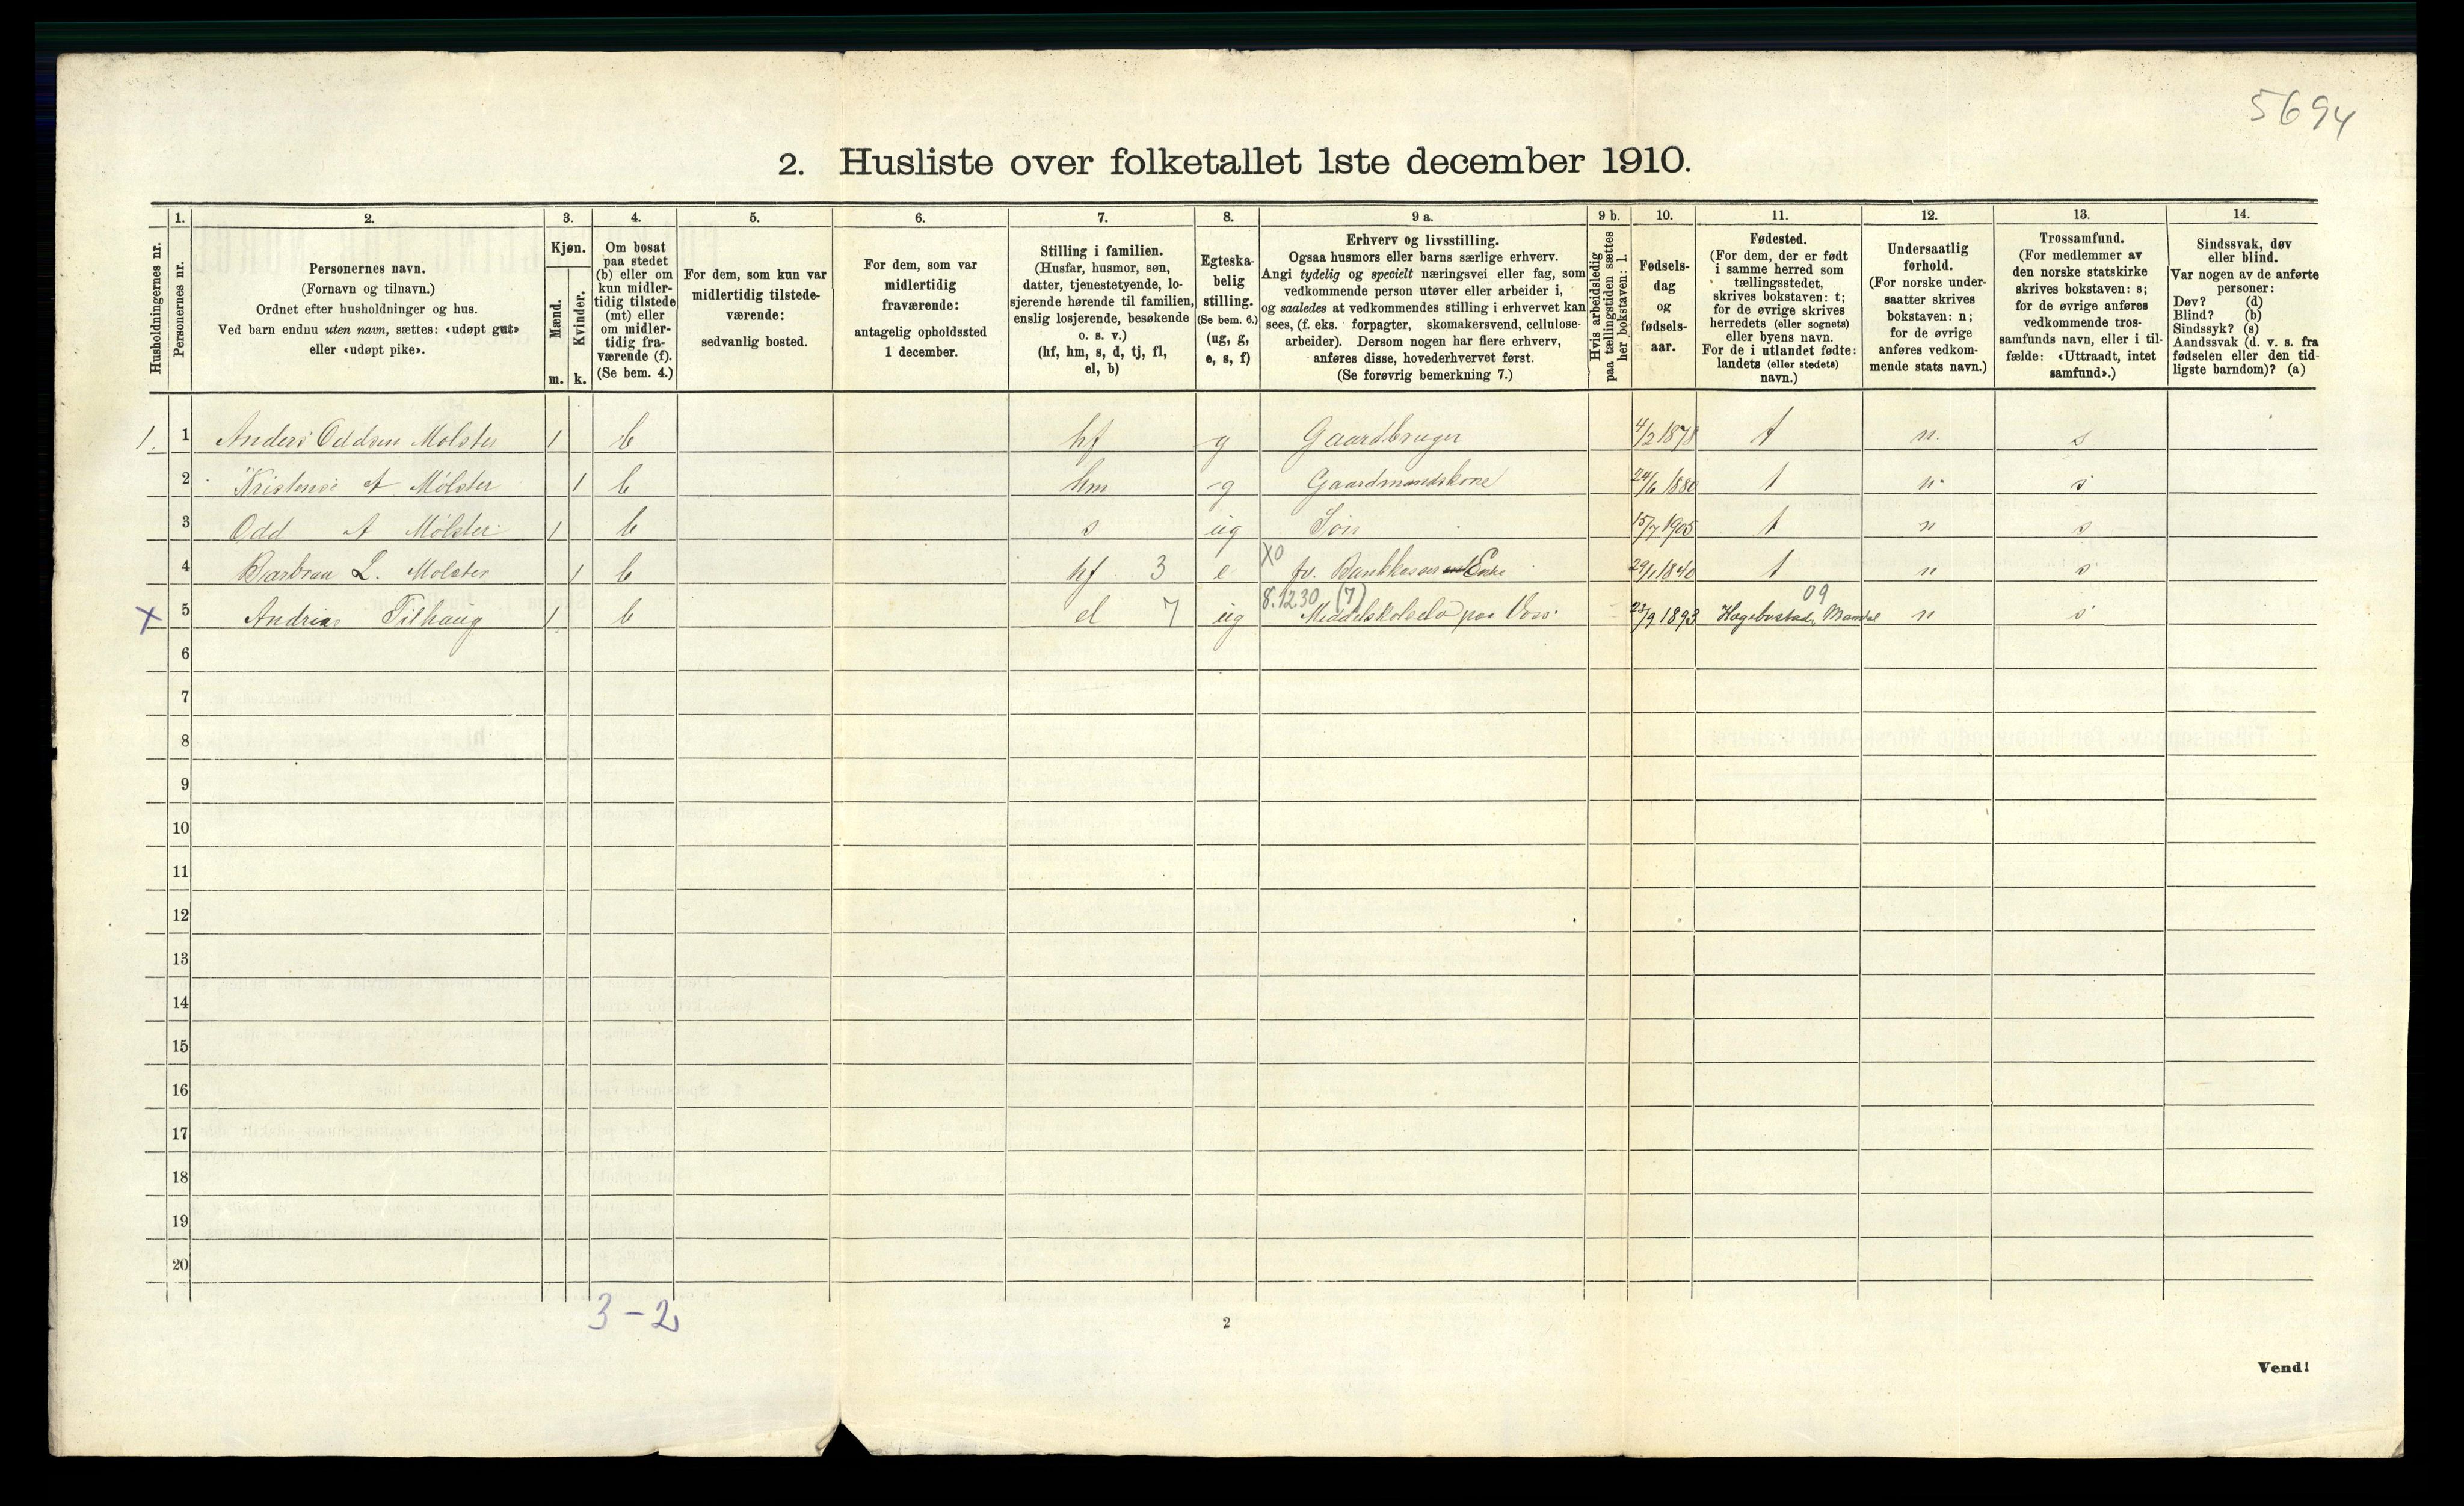 5694
2. Husliste over folketallet 1ste december 1910.
Husholdningernes nr.
1.
Personernes nr.
2.
Personernes navn.
(Fornavn og tilnavn.)
Ordnet efter husholdninger og hus.
Ved barn endnu uten navn, sættes: «udøpt gut»
eller «udøpt pike».
3.
Kjøn.
Mænd.
Kvinder.
m. k.
4.
Om bosat
paa stedet
(b) eller om
kun midler-
tidig tilstede
(mt) eller
om midler-
tidig fra-
værende (f).
(Se bem. 4.)
5.
For dem, som kun var
midlertidig tilstede-
værende:
sedvanlig bosted.
6.
For dem, som var
midlertidig
fraværende:
antagelig opholdssted
1 december.
7.
Stilling i familien.
(Husfar, husmor, søn,
datter, tjenestetyende, lo-
sjerende hørende til familien,
enslig losjerende, besøkende
o. s. v.)
(hf, hm, s, d, tj, fl,
el, b)
8.
Egteska-
belig
stilling.
(Se bem. 6.)
(ug, g,
e, s, f)
9 a.
Erhverv og livsstilling.
Ogsaa husmors eller barns særlige erhverv.
Angi tydelig og specielt næringsvei eller fag, som
vedkommende person utøver eller arbeider i,
og saaledes at vedkommendes stilling i erhvervet kan
sees, (f. eks. forpagter, skomakersvend, cellulose-
arbeider). Dersom nogen har flere erhverv,
anføres disse, hovederhvervet først.
(Se forøvrig bemerkning 7.)
9 b.
Hvis arbeidsledig
paa tællingstiden sættes
her bokstaven: l.
10.
Fødsels-
dag
og
fødsels-
aar.
11.
Fødested.
(For dem, der er født
i samme herred som
tællingsstedet,
skrives bokstaven: t;
for de øvrige skrives
herredets (eller sognets)
eller byens navn.
For de i utlandet fødte:
landets (eller stedets)
navn.)
12.
Undersaatlig
forhold.
(For norske under-
saatter skrives
bokstaven: n;
for de øvrige
anføres vedkom-
mende stats navn.)
13.
Trossamfund.
(For medlemmer av
den norske statskirke
skrives bokstaven: s;
for de øvrige anføres
vedkommende tros-
samfunds navn, eller i til-
fælde: «Uttraadt, intet
samfund».)
14.
Sindssvak, døv
eller blind.
Var nogen av de anførte
personer:
Døv? (d)
Blind? (b)
Sindssyk? (s)
Aandssvak (d. v. s. fra
fødselen eller den tid-
ligste barndom)? (a)
1. 1 Anders Oddsen Mølster 1 b hf g Gaardbruger 4/2 1878 t n. s
2 Kristense A Mølster 1 b hm g Gaardmandskone 24/6 1880 t n s
3 Odd A Mølster 1 b s ug Søn 15/7 1905 t n s
4 Barbrau L. Mølster 1 b hf 3 e X0 fv. Bankkasserer Enke 29/1 1840 t n s
8.12.30 (7) 09
x 5 Andrias Tilhaug 1 b el 7 ug Middelskolelev paa Voss 23/9 1893 Hægebostad, Mandal n s
6
7
8
9
10
11
12
13
14
15
16
17
18
19
20
3-2
2
Vend!